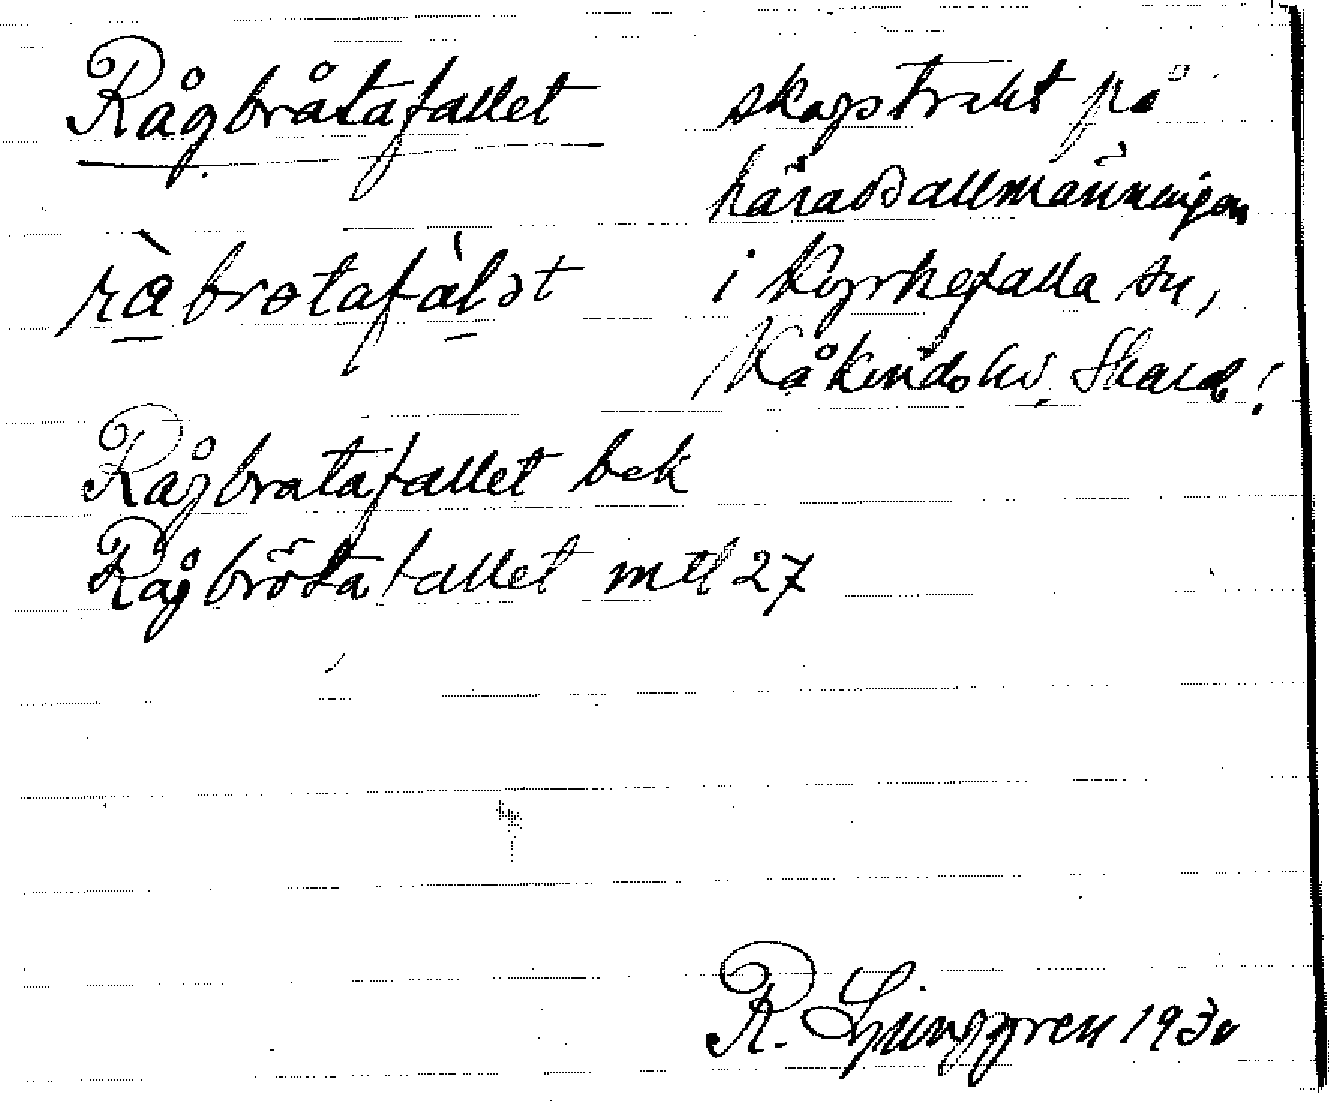 Rågbråtafallet
skogstrakt på
häradsallmänningen
i Kyrkefalla sn,
Kåkinds hd, Skarab.
rà brotafàlət
Rågbratafallet bek
Rågbrötafallet mtl 27
R. Ljunggren 1930